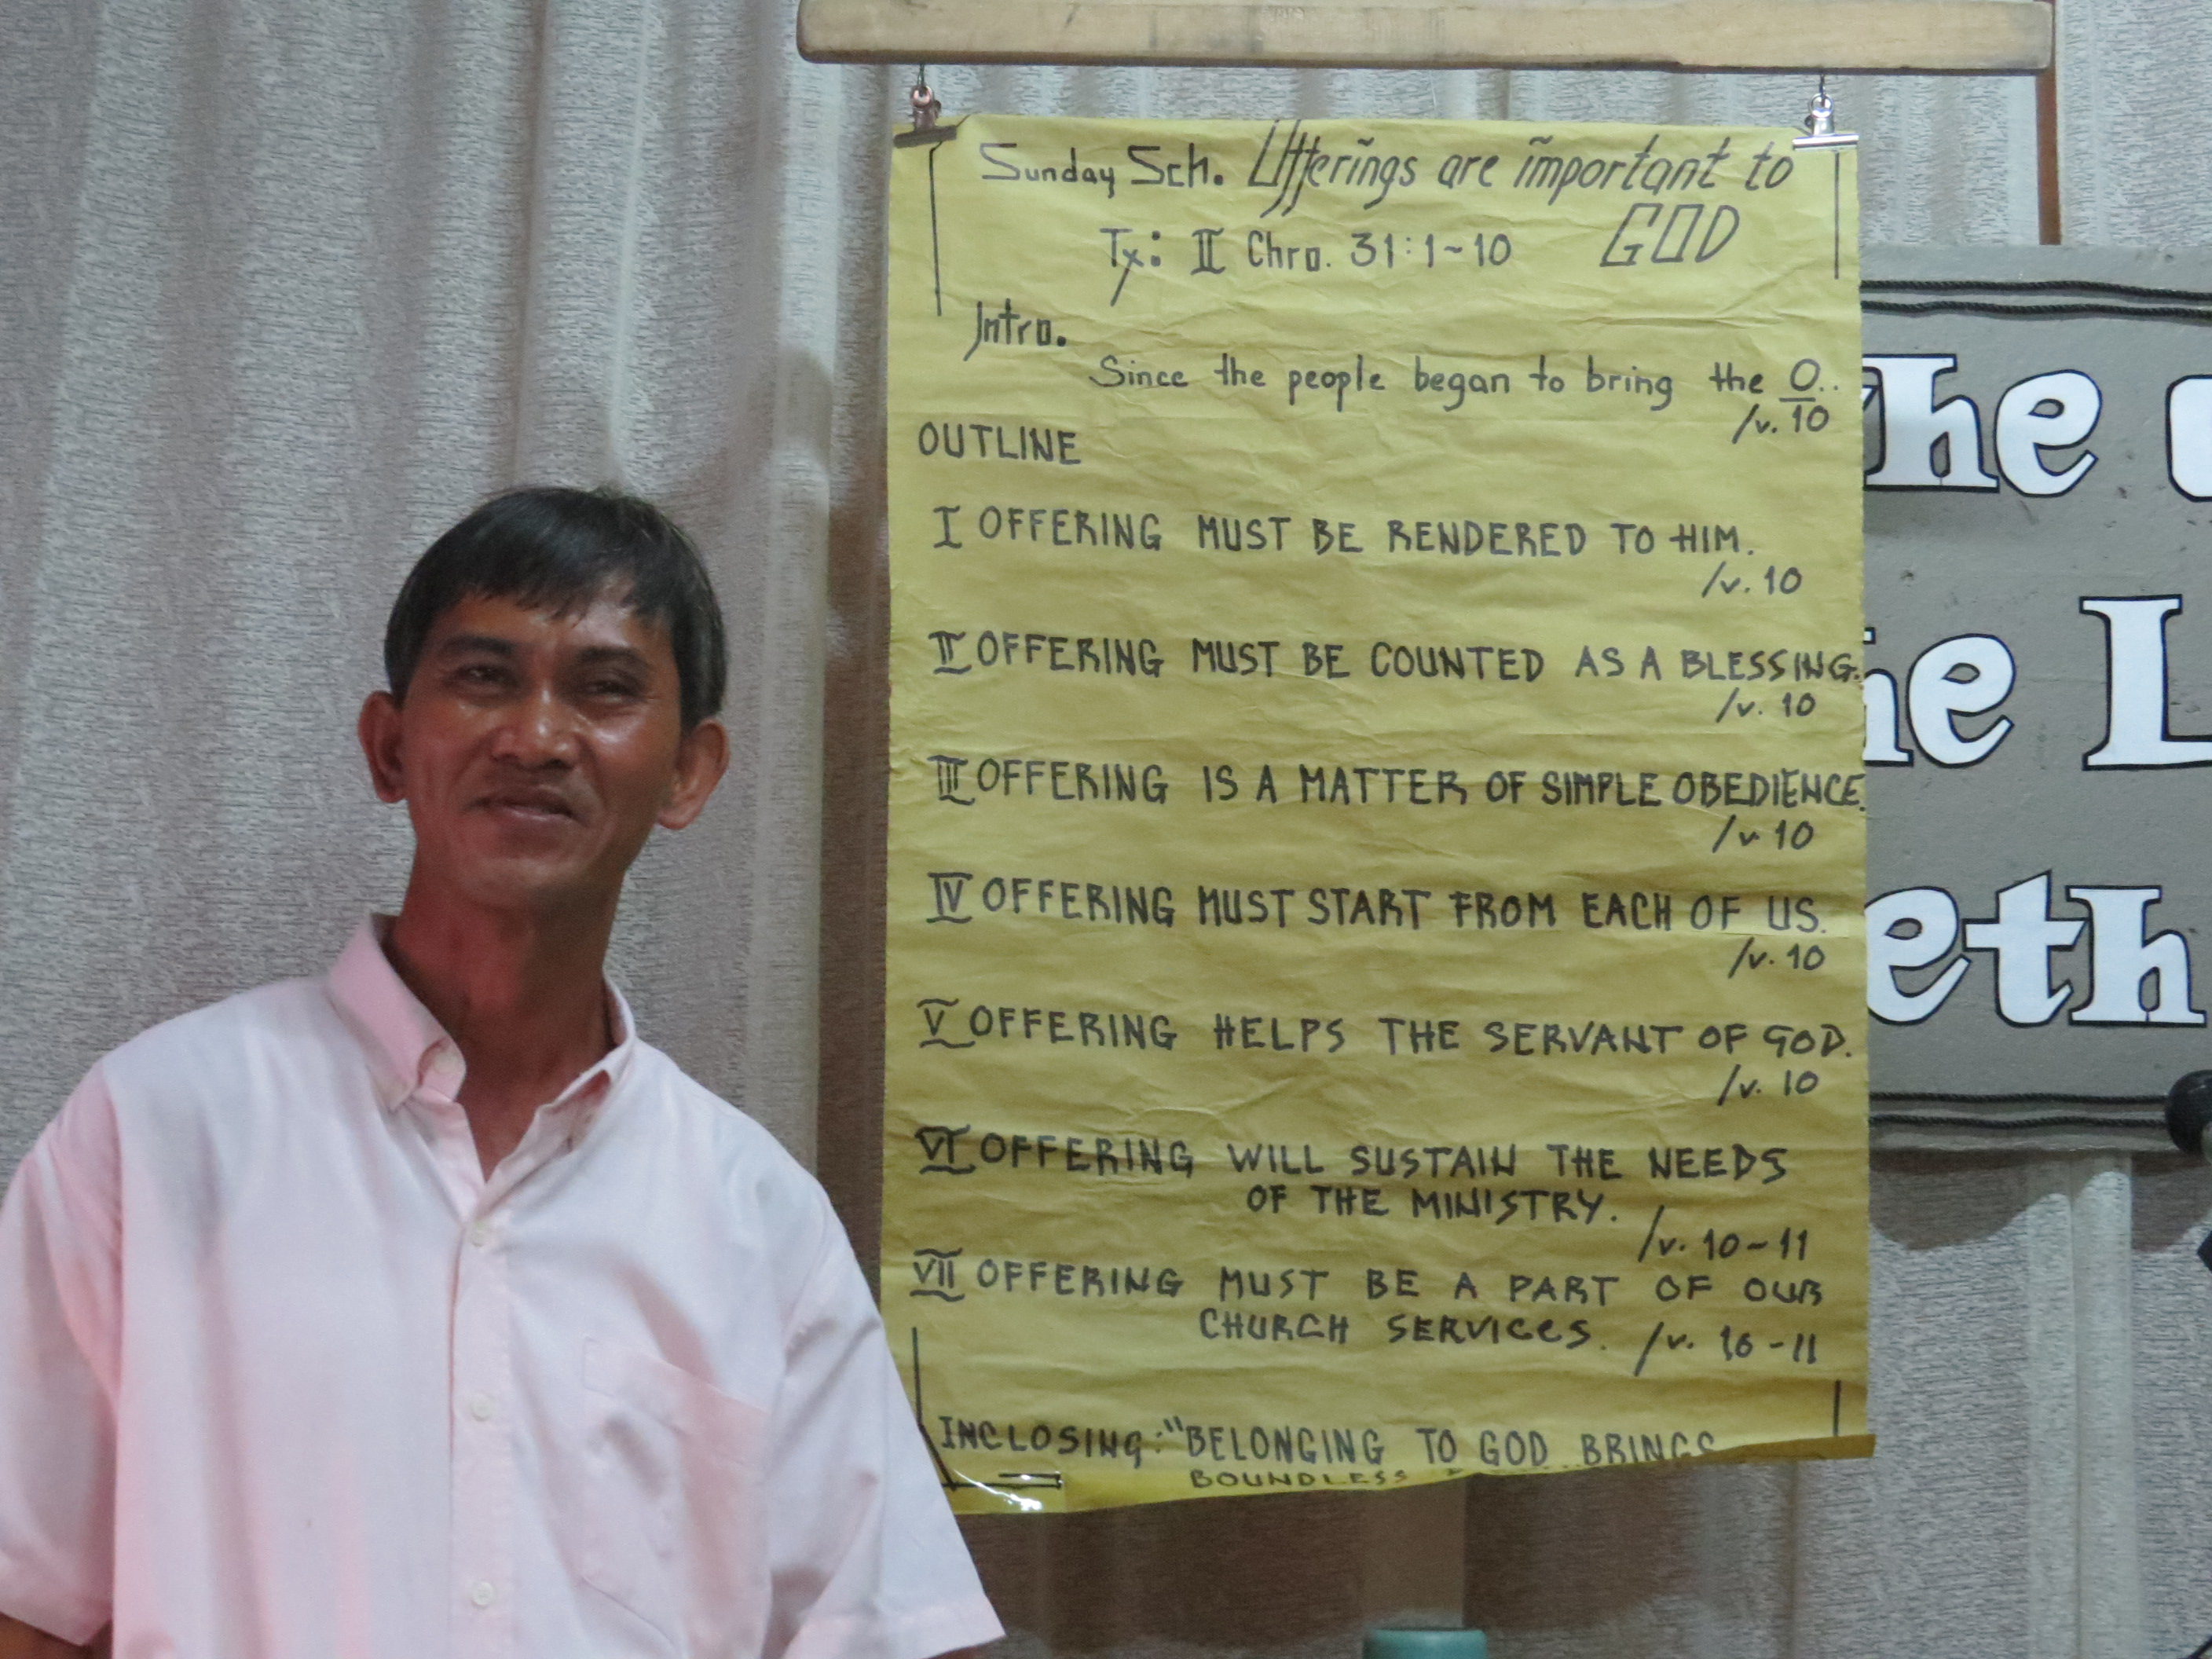 Sunday Sch. Offerings are important to
GOD
Tx: II Chro. 31:1~10
Intro.
Since the people began to bring the O..
/v. 10
OUTLINE
I OFFERING MUST BE RENDERED TO HIM.
/v. 10
II OFFERING MUST BE COUNTED AS A BLESSING.
/v. 10
III OFFERING IS A MATTER OF SIMPLE OBEDIENCE.
/v 10
IV OFFERING MUST START FROM EACH OF US.
/v. 10
V OFFERING HELPS THE SERVANT OF GOD.
/v. 10
VI OFFERING WILL SUSTAIN THE NEEDS
OF THE MINISTRY.
/v. 10~11
VII OFFERING MUST BE A PART OF OUR
CHURCH SERVICES. /v. 10-11
INCLOSING: "BELONGING TO GOD BRINGS
BOUNDLESS
he
he L
eth